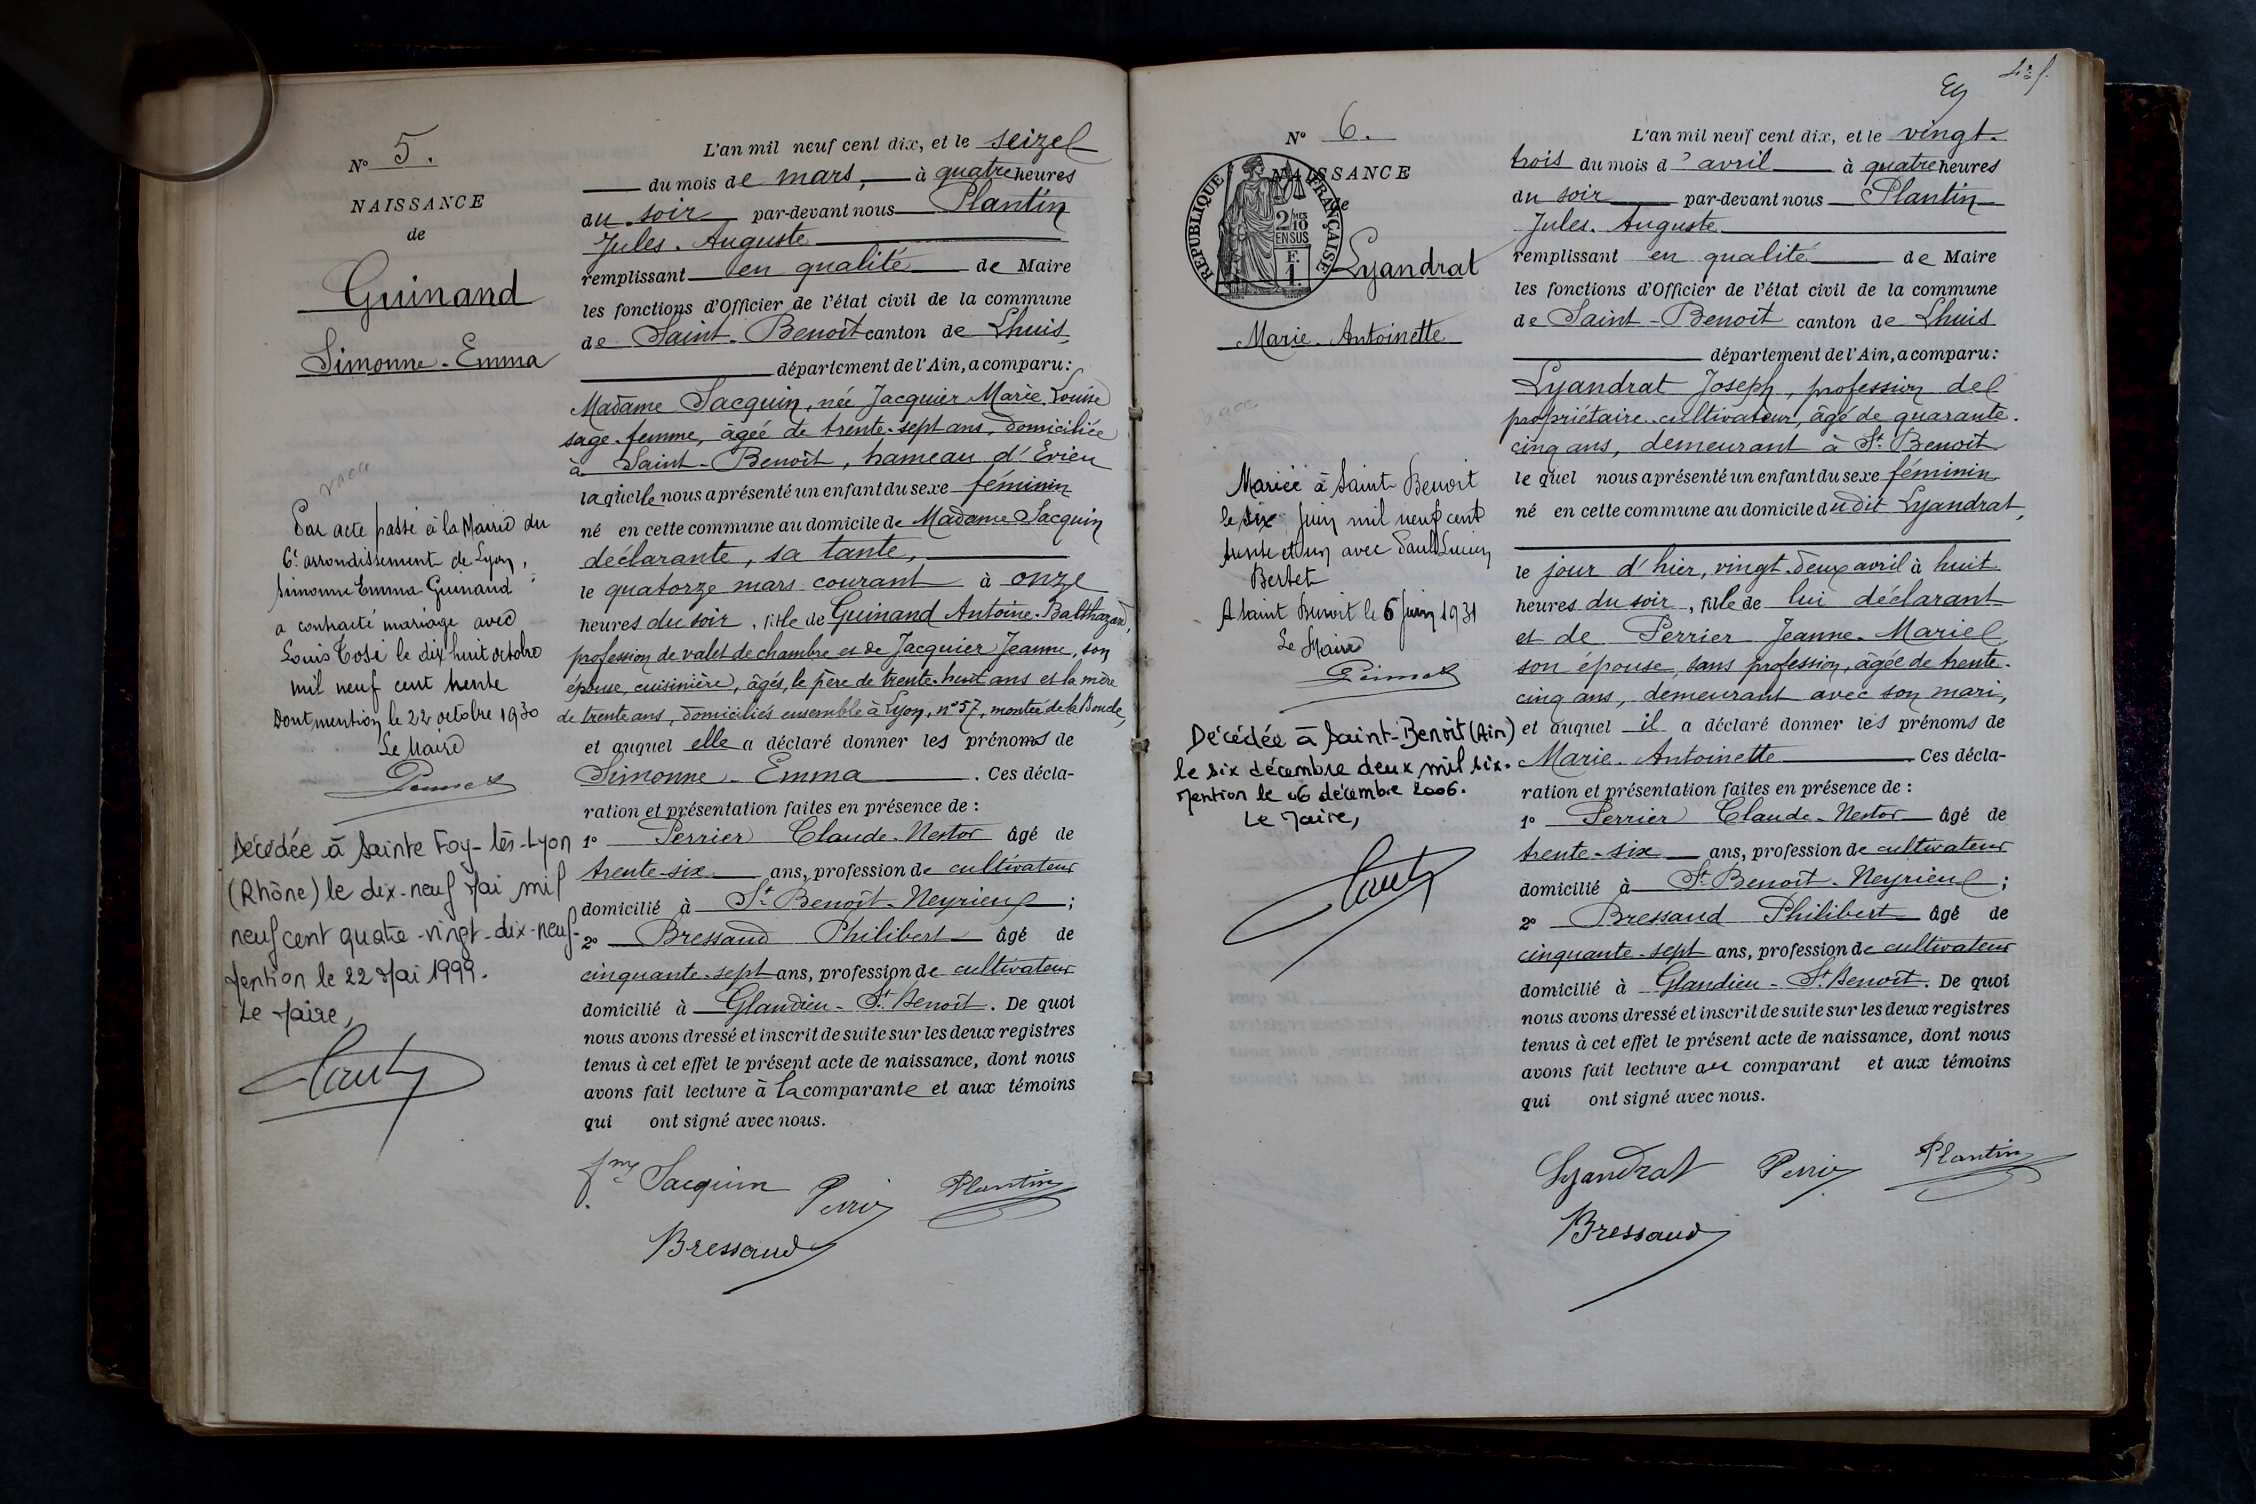 N° 5.
NAISSANCE
de
Guinand
Simonne-Emma
Par acte passé à la Mairie du
6e arrondissement de Lyon,
Simonne Emma Guinand
a contracté mariage avec
Louis Tosi le dix huit octobre
mil neuf cent trente
Dont mention le 22 octobre 1930
Le Maire
Décédée à Sainte Foy-lès-Lyon
(Rhône) le dix-neuf Mai mil
neuf cent quatre-vingt-dix-neuf.
Mention le 22 Mai 1999.
Le Maire,
L'an mil neuf cent dix, et le seize
du mois de mars, à quatre heures
du soir par-devant nous Plantin
Jules-Auguste
remplissant en qualité de Maire
les fonctions d'Officier de l'état civil de la commune
de Saint-Benoît canton de Lhuis
département de l'Ain, a comparu:
Madame Jacquin, née Jacquier Marie Louise
sage-femme, âgée de trente-sept ans, domiciliée
à Saint-Benoît, hameau d'Evieu
laquelle nous a présenté un enfant du sexe féminin
né en cette commune au domicile de Madame Jacquin
déclarante, sa tante,
le quatorze mars courant à onze
heures du soir, fille de Guinand Antoine-Balthazard,
profession de valet de chambre et de Jacquier Jeanne, son
épouse, cuisinière, âgés, le père de trente-huit ans et la mère
de trente ans, domiciliés ensemble à Lyon, n° 57, montée de la Boucle,
et auquel elle a déclaré donner les prénoms de
Simonne-Emma. Ces décla-
ration et présentation faites en présence de :
1° Perrier Claude-Nestor âgé de
trente-six ans, profession de cultivateur
domicilié à St Benoît-Neyrieu ;
2° Bressaud Philibert âgé de
cinquante-sept ans, profession de cultivateur
domicilié à Glandieu-St Benoît. De quoi
nous avons dressé et inscrit de suite sur les deux registres
tenus à cet effet le présent acte de naissance, dont nous
avons fait lecture à la comparante et aux témoins
qui ont signé avec nous.
fme Jacquin Perrier Plantin
Bressaud
N° 6.
NAISSANCE
de
RÉPUBLIQUE FRANÇAISE
2/10 EN SUS
F. 1.
Lyandrat
Marie-Antoinette
Mariée à Saint Benoit
le six Juin mil neuf cent
trente et un avec Paul Lucien
Bertet
A Saint Benoit le 6 Juin 1931
Le Maire
Décédée à Saint-Benoît (Ain)
le six décembre deux mil six.
Mention le 06 décembre 2006.
Le Maire,
L'an mil neuf cent dix, et le vingt-
trois du mois d'avril à quatre heures
du soir par-devant nous Plantin
Jules-Auguste
remplissant en qualité de Maire
les fonctions d'Officier de l'état civil de la commune
de Saint-Benoît canton de Lhuis
département de l'Ain, a comparu:
Lyandrat Joseph, profession de
propriétaire-cultivateur, âgé de quarante-
cinq ans, demeurant à St Benoît
lequel nous a présenté un enfant du sexe féminin
né en cette commune au domicile dudit Lyandrat,
le jour d'hier, vingt-deux avril à huit
heures du soir, fille de lui déclarant
et de Perrier Jeanne-Marie
son épouse, sans profession, âgée de trente-
cinq ans, demeurant avec son mari,
et auquel il a déclaré donner les prénoms de
Marie-Antoinette. Ces décla-
ration et présentation faites en présence de :
1° Perrier Claude-Nestor âgé de
trente-six ans, profession de cultivateur
domicilié à St Benoît-Neyrieu ;
2° Bressaud Philibert âgé de
cinquante-sept ans, profession de cultivateur
domicilié à Glandieu-St Benoît. De quoi
nous avons dressé et inscrit de suite sur les deux registres
tenus à cet effet le présent acte de naissance, dont nous
avons fait lecture au comparant et aux témoins
qui ont signé avec nous.
Lyandrat Perrier Plantin
Bressaud